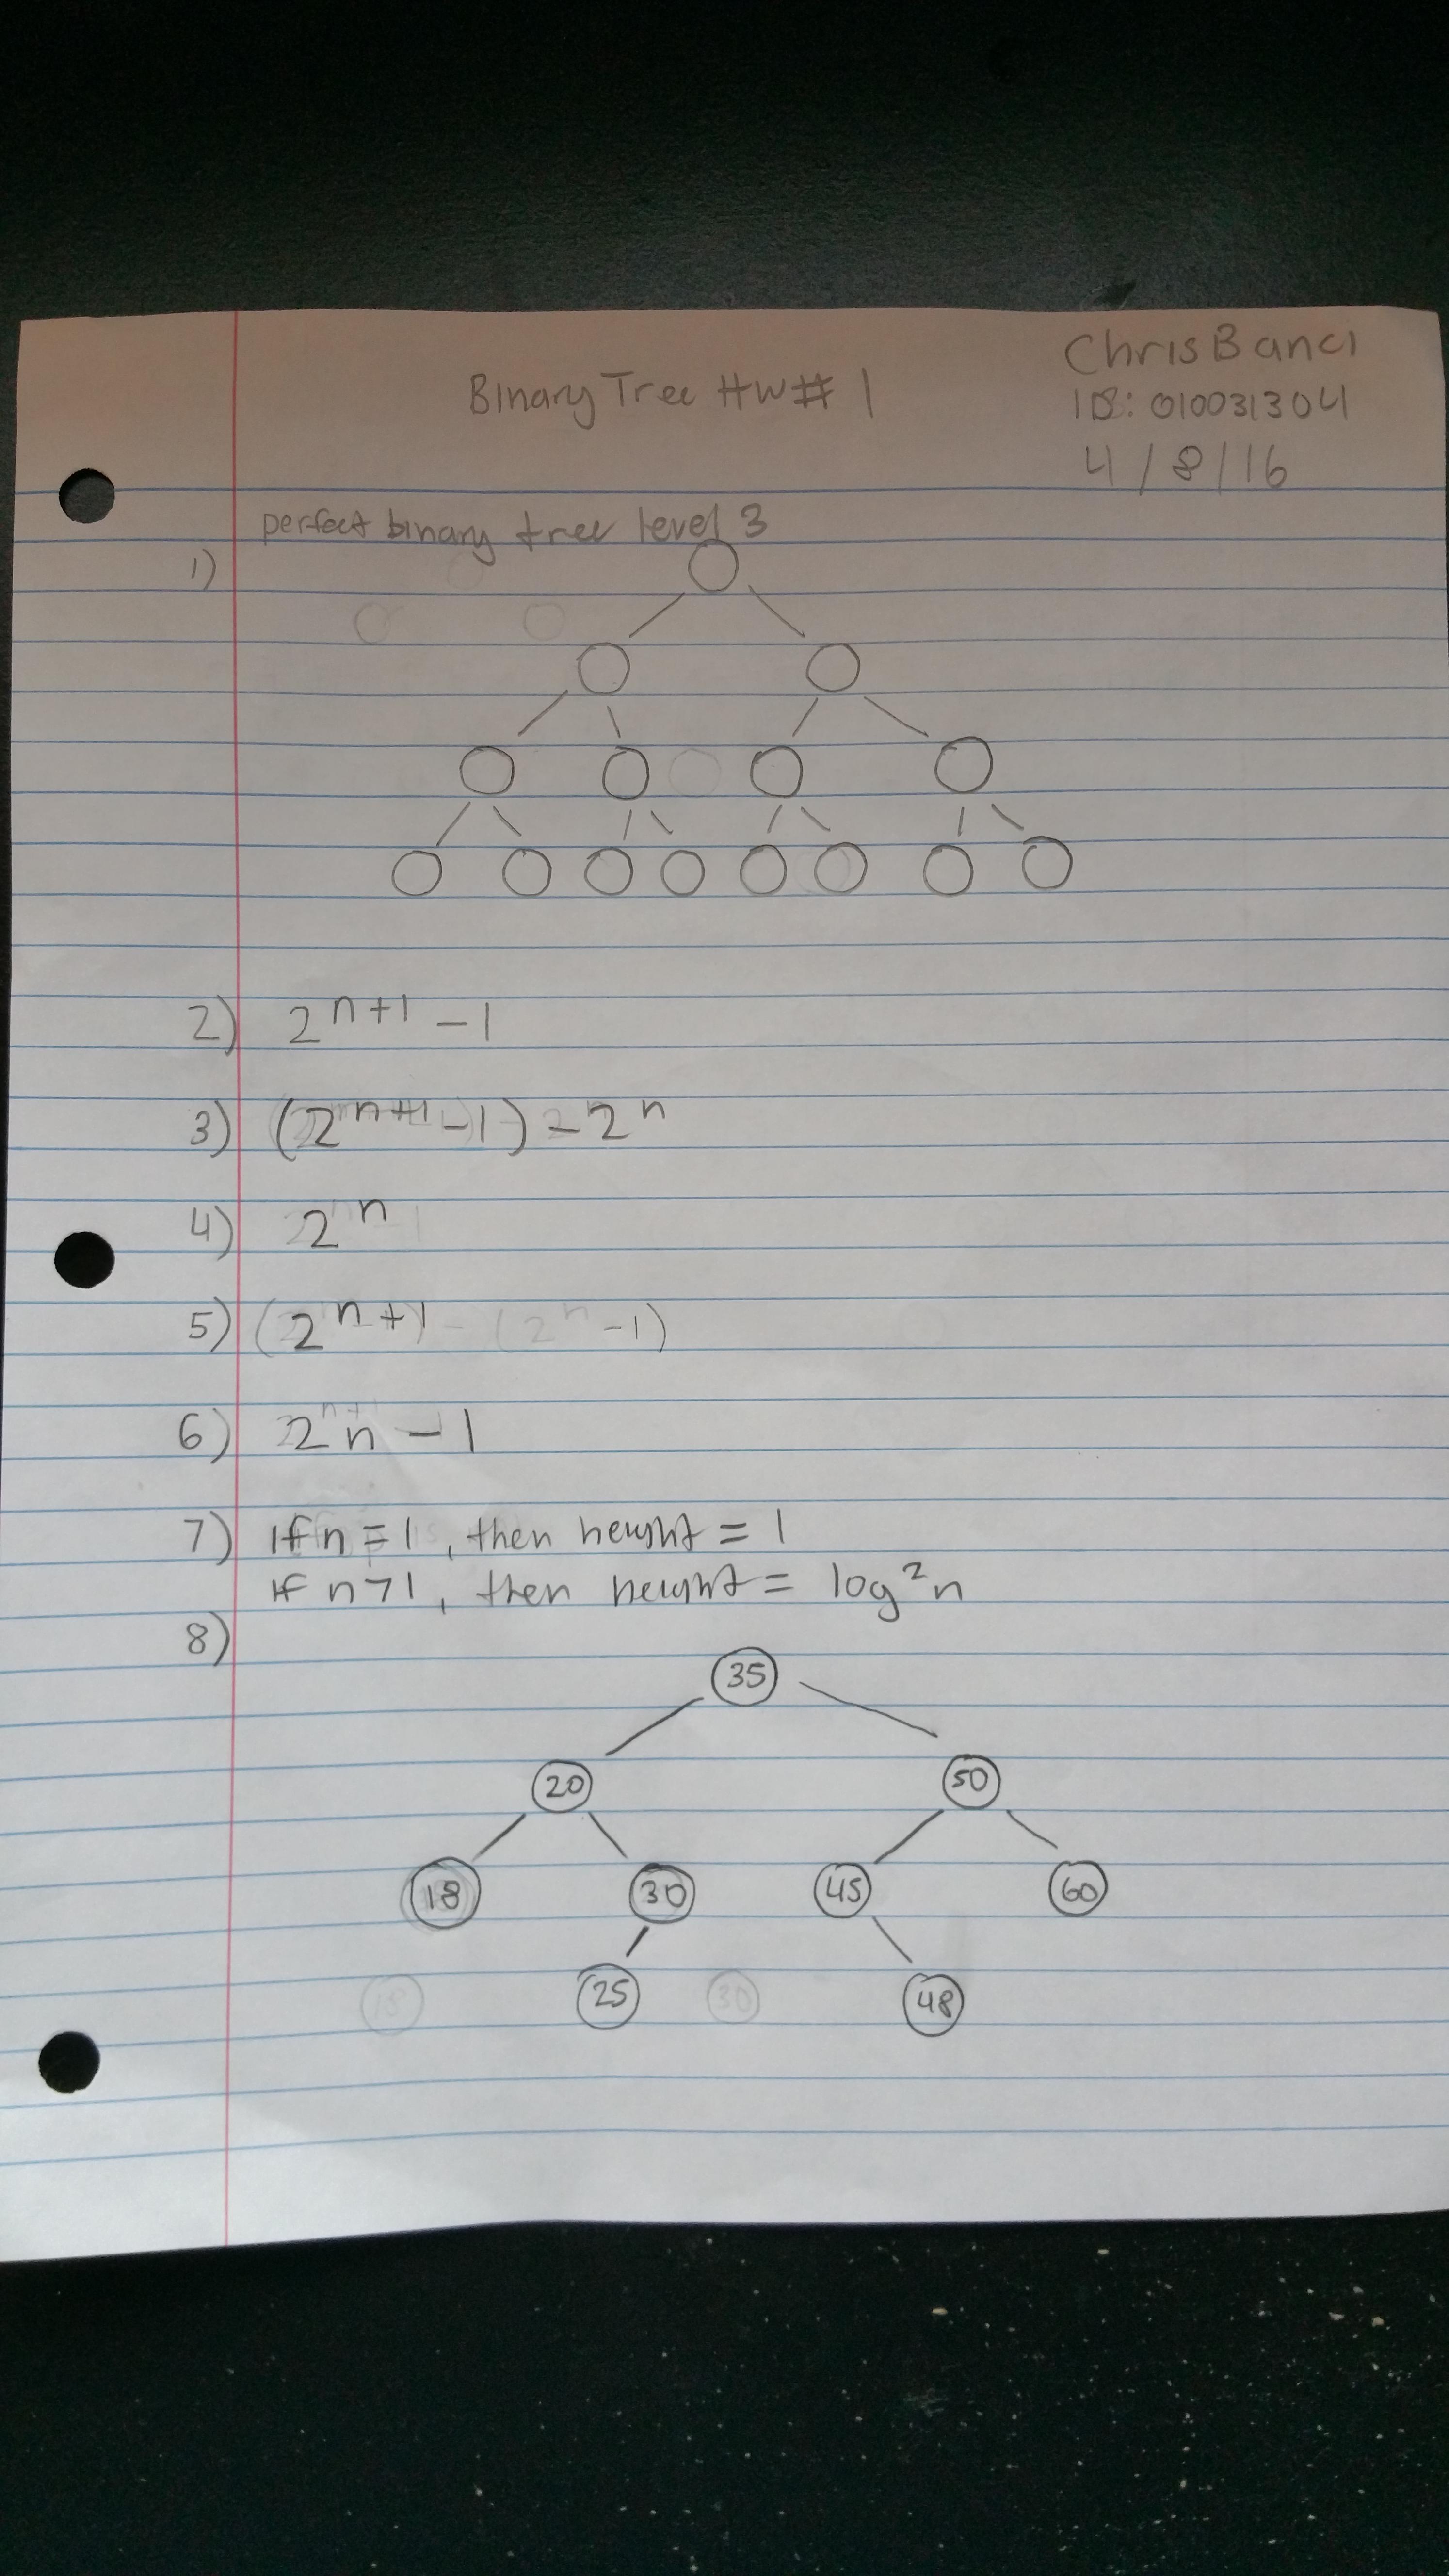 Binary Tree HW# 1
Chris Banci
ID: 010031304
4/8/16
perfect binary tree level 3
1)
2) 2^{n+1} - 1
3) (2^{n+1} - 1) - 2^n
4) 2^n
5) 2^{n+1}
6) 2n - 1
7) If n = 1, then height = 1
If n > 1, then height = log²n
8)
35
20 50
18 30 45 60
25 48